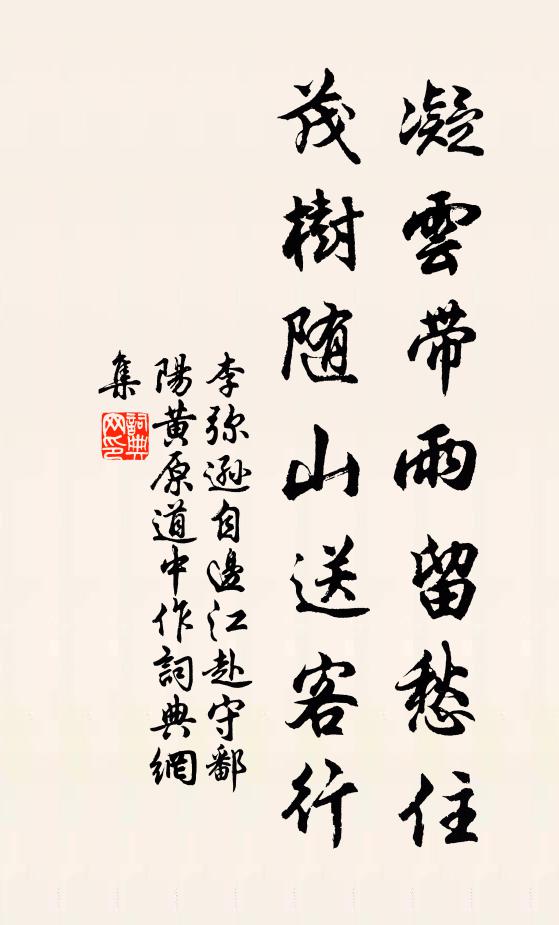 凝雲帶雨留愁住
茂樹随山送客行
李弥遜自邊江赴守鄱
陽黄原道中作詞典網
集
詞典
网印